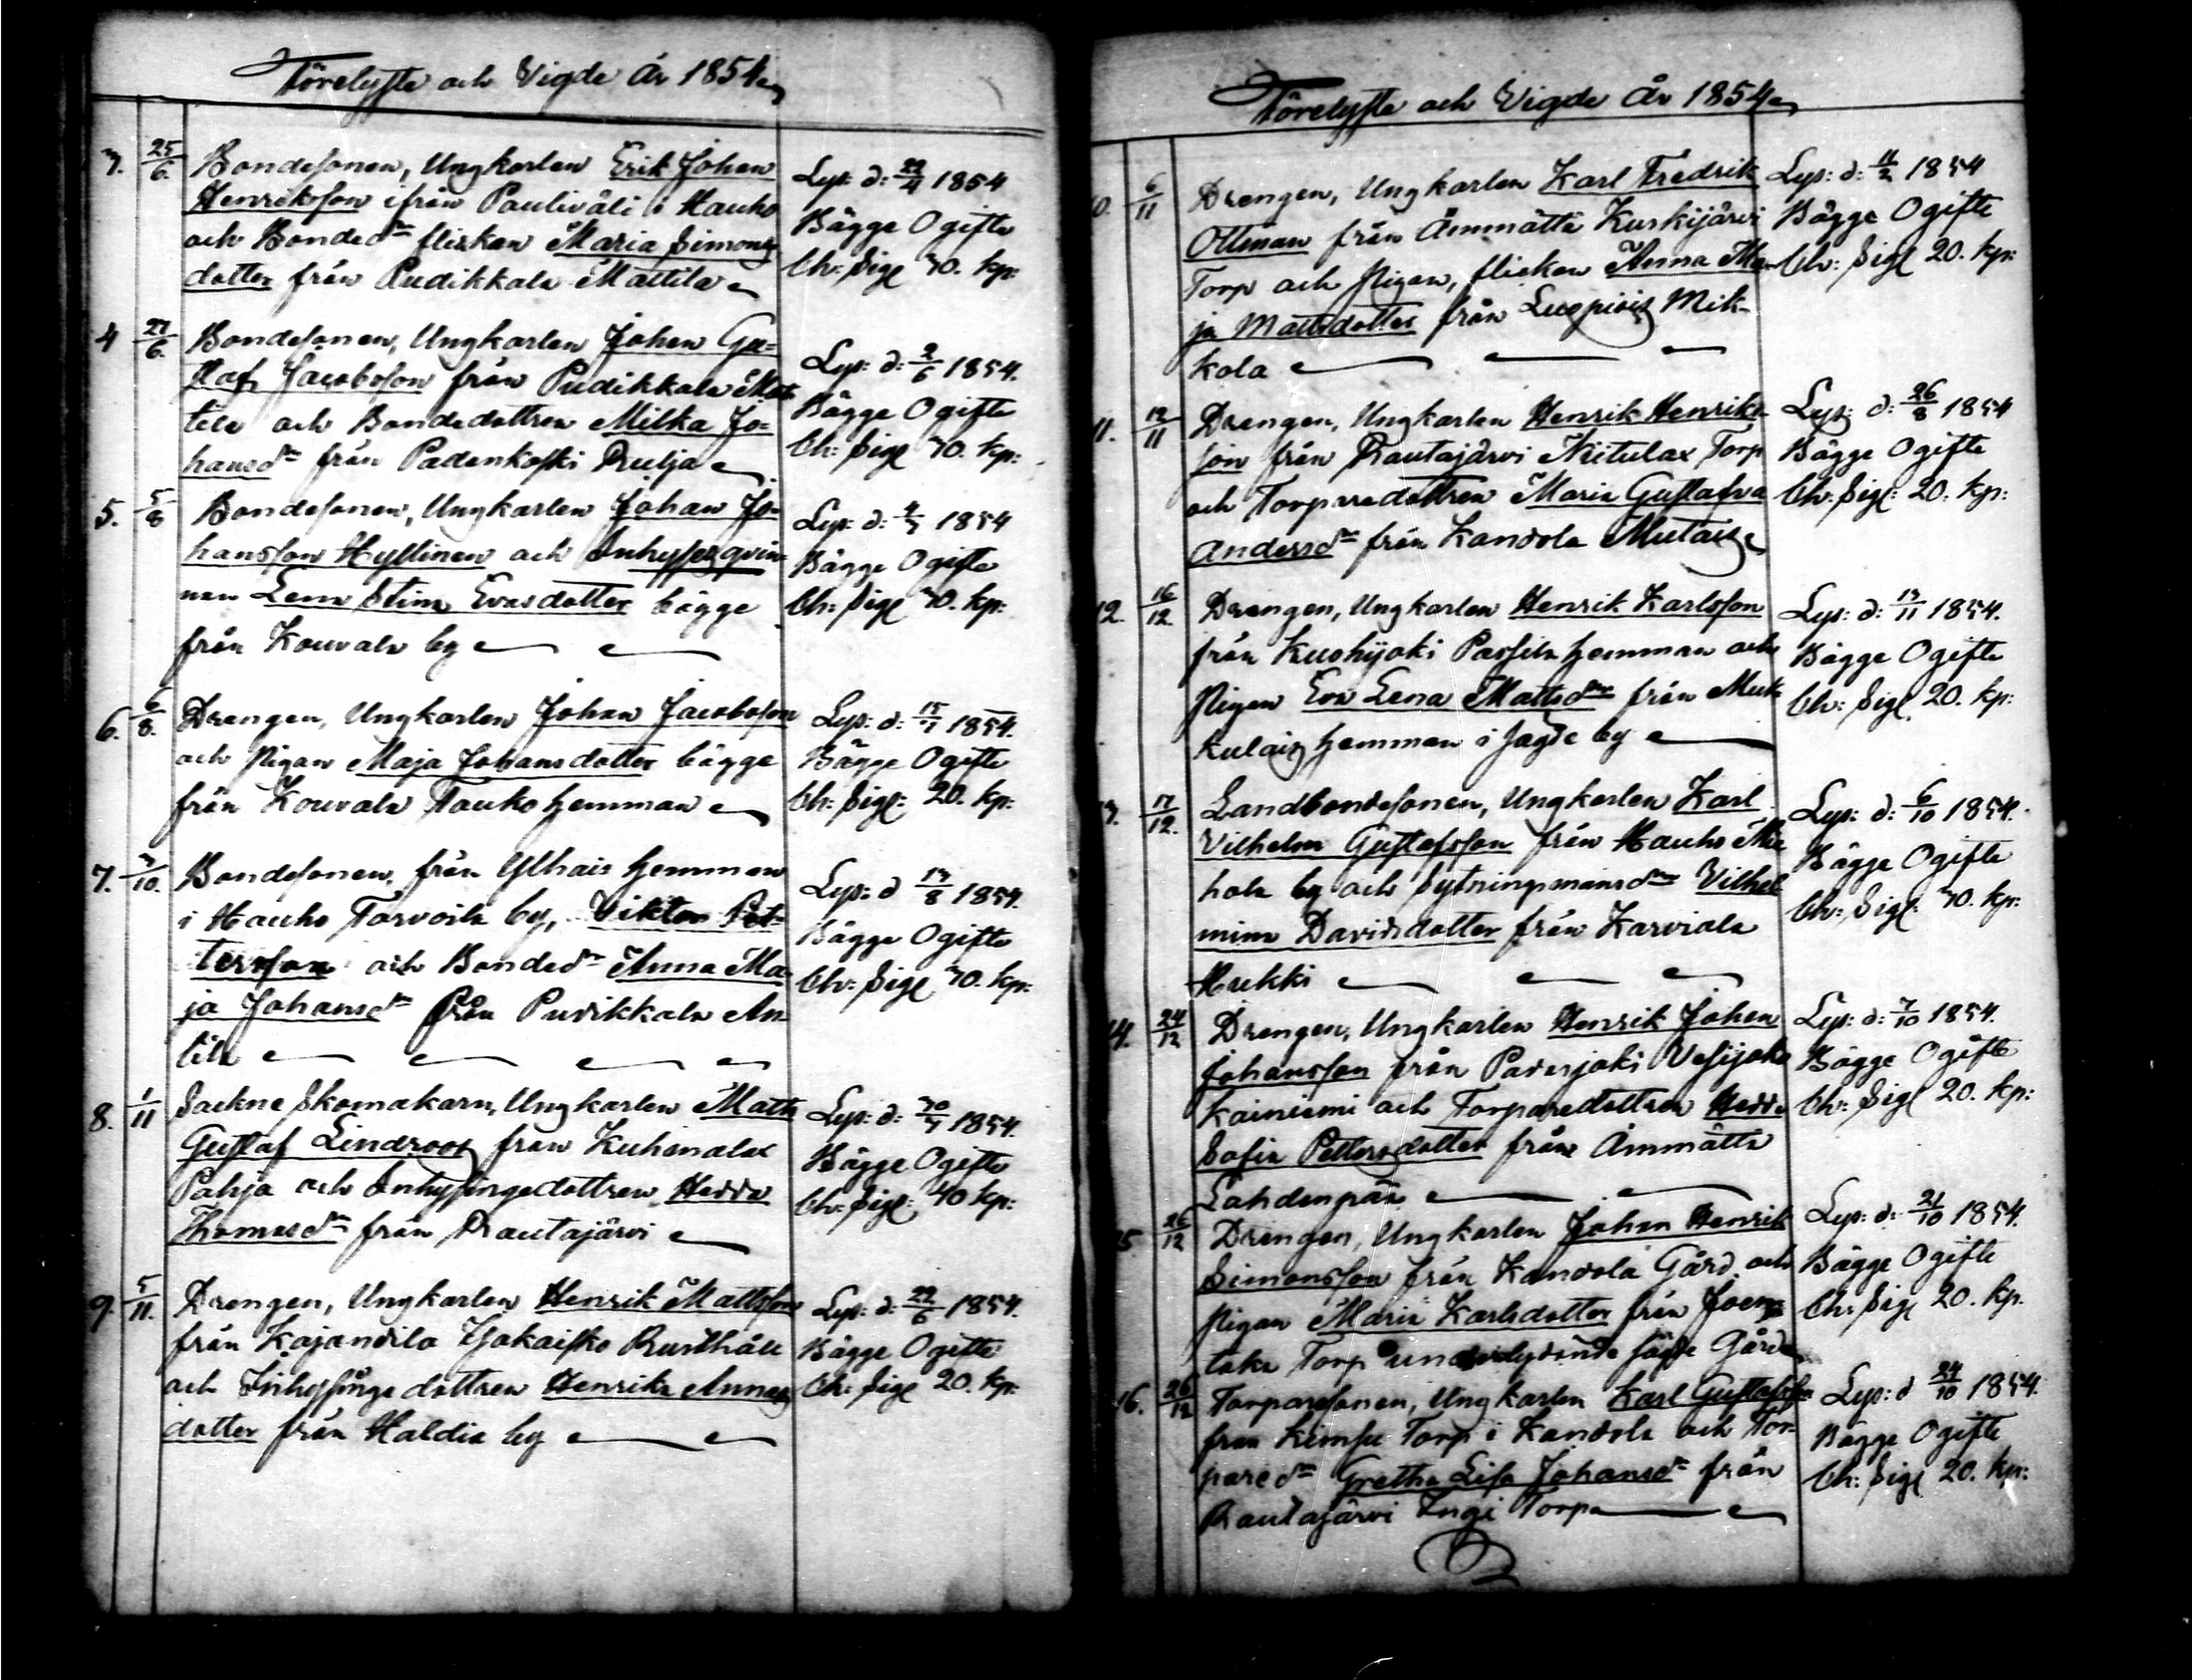 Förelyste och Vigde År 1854
3. 25/6. Bondesonen, Ungkarlen Erik Johan
Henriksson ifrån Pauliväli i Hauho
och Bonded:n flickan Maria Simons
dotter från Pudikkala Mattila
Lys: d: 22/4 1854
Bägge Ogifte
Ch: Sigl 70. kp:
4 27/6. Bondesonen, Ungkarlen Johan Gu=
staf Jacobsson från Pudikkala Mat
tila och Bondedottren Milka Jo=
hansd:n från Padankoski Pulja
Lys: d: 2/6 1854.
Bägge Ogifte
Ch: Sigl 70. kp:
5. 5/8 Bondesonen, Ungkarlen Johan Jo-
hansson Hyllinen och Inhysesqvin-
nan Lena Stina Evasdotter bägge
från Kouvala by
Lys: d: 4/7 1854
Bägge Ogifte
Ch: Sigl 70. kp:
6. 6/8. Drengen, Ungkarlen Johan Jacobsson
och Pigan Maja Johansdotter bägge
från Kouvala Tauko hemman
Lys: d: 15/7 1854.
Bägge Ogifte
Ch: Sigl: 20. kp:
7. 7/10. Bondesonen, från Ylhais hemman
i Hauho Torvoila by, Viktor Pet-
tersson och Bonded:n Anna Ma-
ja Johansd:n från Pudikkala An
tila
Lys: d 13/8 1854.
Bägge Ogifte
Ch: Sigl 70. kp:
8. 1/11 Sockne Skomakarn, Ungkarlen Matts
Gustaf Lindroos från Kuhmalax
Pahja och Inhysingedottren Hedda
Thomasd:n från Rautajärvi
Lys: d: 30/7 1854.
Bägge Ogifte
Ch: Sigl: 40 kp:
9. 5/11. Drengen, Ungkarlen Henrik Mattsson
från Kajandila Yjakaisko Rusthåll
och Inhysinge dottren Henrika Annas
dotter från Haldia by
Lys: d: 22/6 1854.
Bägge Ogifte
Ch: Sigl 20. kp:
Förelyste och Vigde År 1854
0. 6/11 Drengen, Ungkarlen Karl Fredrik
Ottman från Ämmättä Kurkijärvi
Torp och Pigan, flickan Anna Ma-
ja Mattsdotter från Luopiois Mik-
kola
Lys: d: 11/2 1854
Bägge Ogifte
Ch: Sigl 20. kp:
11. 12/11 Drengen, Ungkarlen Henrik Henriks-
son från Rautajärvi Niitulax Torp
och Torparedottren Maria Gustafva
Andersd:n från Kandola Mutais
Lys: d: 26/8 1854
Bägge Ogifte
Ch: Sigl: 20. kp:
12. 16/12. Drengen, Ungkarlen Henrik Karlsson
från Kuohijoki Passila hemman och
Pigan Eva Lena Mattsd:n från Muk
kulais hemman i sagde by
Lys: d: 13/11 1854.
Bägge Ogifte
Ch: Sigl. 20. kp:
3. 17/12. Landbondesonen, Ungkarlen Karl
Vilhelm Gustafsson från Hauho Mie
hola by och Sytningsmansd:n Vilhel
mina Davidsdotter från Karviala
Hukki
Lys: d: 6/10 1854.
Bägge Ogifte
Ch: Sigl: 70. kp:
14. 24/12 Drengen, Ungkarlen Henrik Johan
Johansson från Padasjoki Vesijako
Kainiemi och Torparedottren Hedda
Sofia Pettersdotter från Ämmättä
Lahdenpää
Lys: d: 7/10 1854.
Bägge Ogifte
Ch: Sigl 20. kp:
5. 26/12 Drengen, Ungkarlen Johan Henrik
Simonsson från Kandola Gård och
Pigan Maria Karlsdotter från Joen
taka Torp underlydande sagde Gård
Lys: d: 21/10 1854.
Bägge Ogifte
Ch: Sigl 20. kp.
16. 26/12 Torparesonen, Ungkarlen Karl Gustafsson
från Kimsu Torp i Kandola och Tor-
pared:n Gretha Lisa Johansd:n från
Rautajärvi Ingi Torp
Lys: d 24/10 1854.
Bägge Ogifte
Ch: Sigl 20. kp: